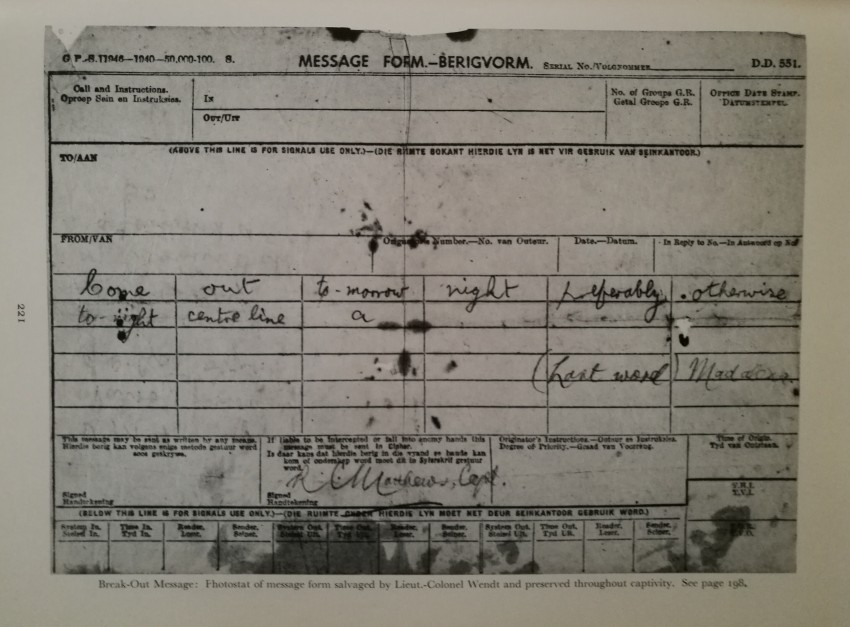 G.P.-S.11946—1940—50,000-100. S. MESSAGE FORM.—BERIGVORM. SERIAL No./VOLGNOMMER D.D. 551.
Call and Instructions. IN No. of Groups G.R. OFFICE DATE STAMP.
Oproep Sein en Instruksies. OUT/UIT Getal Groepe G.R. DATUMSTEMPEL.
(ABOVE THIS LINE IS FOR SIGNALS USE ONLY.)—(DIE RUIMTE BOKANT HIERDIE LYN IS NET VIR GEBRUIK VAN SEINKANTOOR.)
TO/AAN
FROM/VAN Number.—No. van Outeur. Date.—Datum. In Reply to No.—In Antwoord op No.
Come out to-morrow night preferably. otherwise
to-night centre line a
(Last word)
This message may be sent as written by any means.
Hierdie berig kan volgens enige metode gestuur word
If liable to be intercepted or fall into enemy hands this
message must be sent in Cipher.
Is daar kans dat hierdie berig in die vyand se hande kan
kom of onderskep word moet dit in Syferskrif gestuur
word.
Originator's Instructions.—Outeur se Instruksies.
Degree of Priority.—Graad van Voorrang.
Time of Origin.
Tyd van Ontstaan.
Capt.
Signed
Handtekening
Signed
Handtekening
T.H.I.
T.V.I.
(BELOW THIS LINE IS FOR SIGNALS USE ONLY.)—(DIE RUIMTE ONDER HIERDIE LYN MOET NET DEUR SEINKANTOOR GEBRUIK WORD.)
System In. Time In. Reader. Sender. System Out. Time Out. Reader. Sender. System Out. Time Out. Reader. Sender.
Stelsel In. Tyd In. Leser. Seiner. Stelsel Uit. Tyd Uit. Leser. Seiner. Stelsel Uit. Tyd Uit. Leser. Seiner.
Break-Out Message: Photostat of message form salvaged by Lieut.-Colonel Wendt and preserved throughout captivity. See page 198.
221